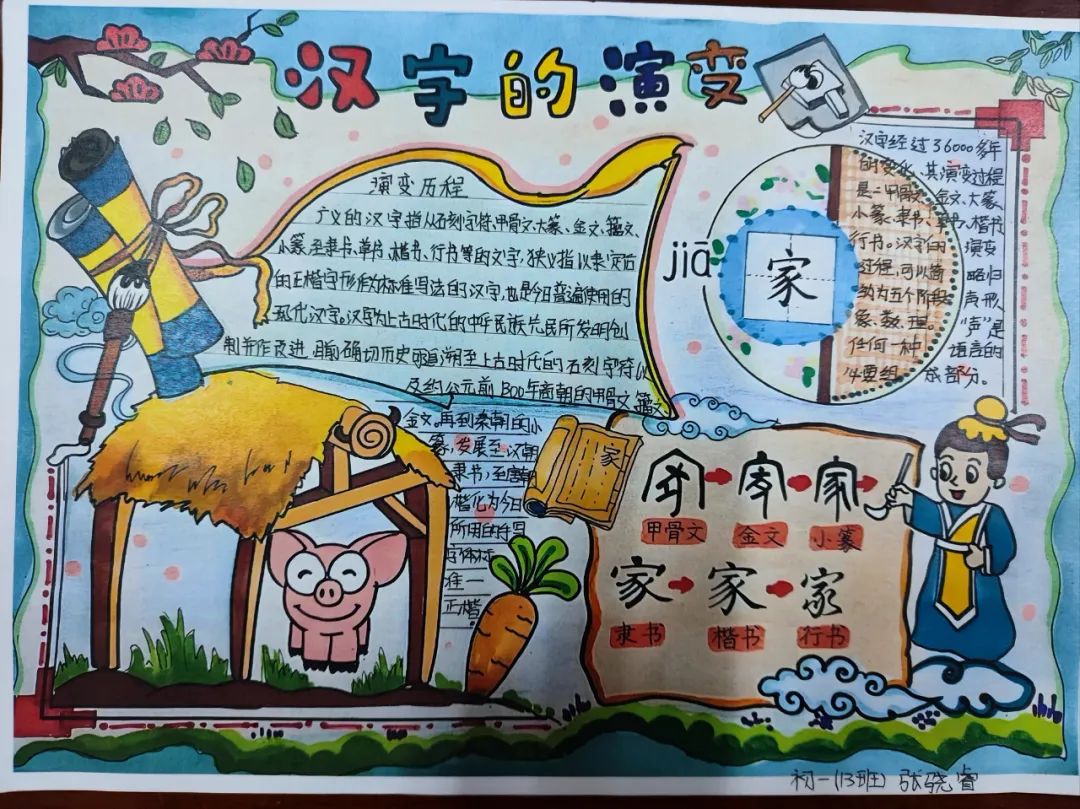 汉字的演变
演变历程
广义的汉字指从石刻字符、甲骨文、大篆、金文、籀文、
小篆,至隶书、草书、楷书、行书等的文字,狭义指以隶定后
的正楷字形作为标准写法的汉字,也是今日普遍使用的
现代汉字。汉字为上古时代的中华民族先民所发明创
制并作改进,目前确切历史可追溯至上古时代的石刻字符以
及约公元前1300年商朝的甲骨文、籀文
金文。再到秦朝的小
篆,发展至汉朝
隶书,至唐朝
楷化为今日
所用的手写
字体标
准一
正楷。
jiā
家
汉字经过36000多年
的变化,其演变过程
是:甲骨文、金文、大篆、
小篆、隶书、草书、楷书
行书。汉字的演变
过程,可以简略归
纳为五个阶段声形
象、数、理。"声"是
任何一种语言的
必要组成部分。
家
甲骨文 金文 小篆
家 家 家
隶书 楷书 行书
初一(13班) 张骁睿